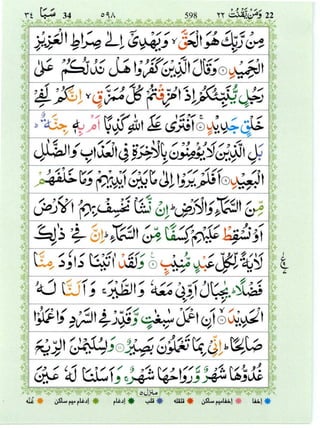 سَبَا 34 ٣٤ ٥٩٨ 598 وَمَنْ يَّقْنُتْ ٢٢ 22
مِنْ رَّبِّكَ هُوَ الْحَقَّ ۙ وَيَهْدِیْۤ اِلٰی صِرَاطِ الْعَزِیْزِ
الْحَمِیْدِ ۝ وَقَالَ الَّذِیْنَ كَفَرُوْا هَلْ نَدُلُّكُمْ عَلٰی
رَجُلٍ یُّنَبِّئُكُمْ اِذَا مُزِّقْتُمْ كُلَّ مُمَزَّقٍ ۙ اِنَّكُمْ لَفِیْ
خَلْقٍ جَدِیْدٍ ۝ اَفْتَرٰی عَلَی اللّٰهِ كَذِبًا اَمْ بِهٖ جِنَّةٌ ؕ
بَلِ الَّذِیْنَ لَا یُؤْمِنُوْنَ بِالْاٰخِرَةِ فِی الْعَذَابِ وَالضَّلٰلِ
الْبَعِیْدِ ۝ اَفَلَمْ یَرَوْا اِلٰی مَا بَیْنَ اَیْدِیْهِمْ وَمَا خَلْفَهُمْ
مِّنَ السَّمَآءِ وَالْاَرْضِ ؕ اِنْ نَّشَاْ نَخْسِفْ بِهِمُ الْاَرْضَ
اَوْ نُسْقِطْ عَلَیْهِمْ كِسَفًا مِّنَ السَّمَآءِ ؕ اِنَّ فِیْ ذٰلِكَ
لَاٰیَةً لِّكُلِّ عَبْدٍ مُّنِیْبٍ ۝ وَلَقَدْ اٰتَیْنَا دَاوٗدَ مِنَّا
فَضْلًا ؕ یٰجِبَالُ اَوِّبِیْ مَعَهٗ وَالطَّیْرَ ۚ وَاَلَنَّا لَهُ
الْحَدِیْدَ ۝ اَنِ اعْمَلْ سٰبِغٰتٍ وَّقَدِّرْ فِی السَّرْدِ وَاعْمَلُوْا
صَالِحًا ؕ اِنِّیْ بِمَا تَعْمَلُوْنَ بَصِیْرٌ ۝ وَلِسُلَیْمٰنَ الرِّیْحَ
غُدُوُّهَا شَهْرٌ وَّرَوَاحُهَا شَهْرٌ ۚ وَاَسَلْنَا لَهٗ عَیْنَ
منزل ٥
اخفا اخفا میم ساکن قلقله قلب ادغام ادغام میم ساکن غنّه